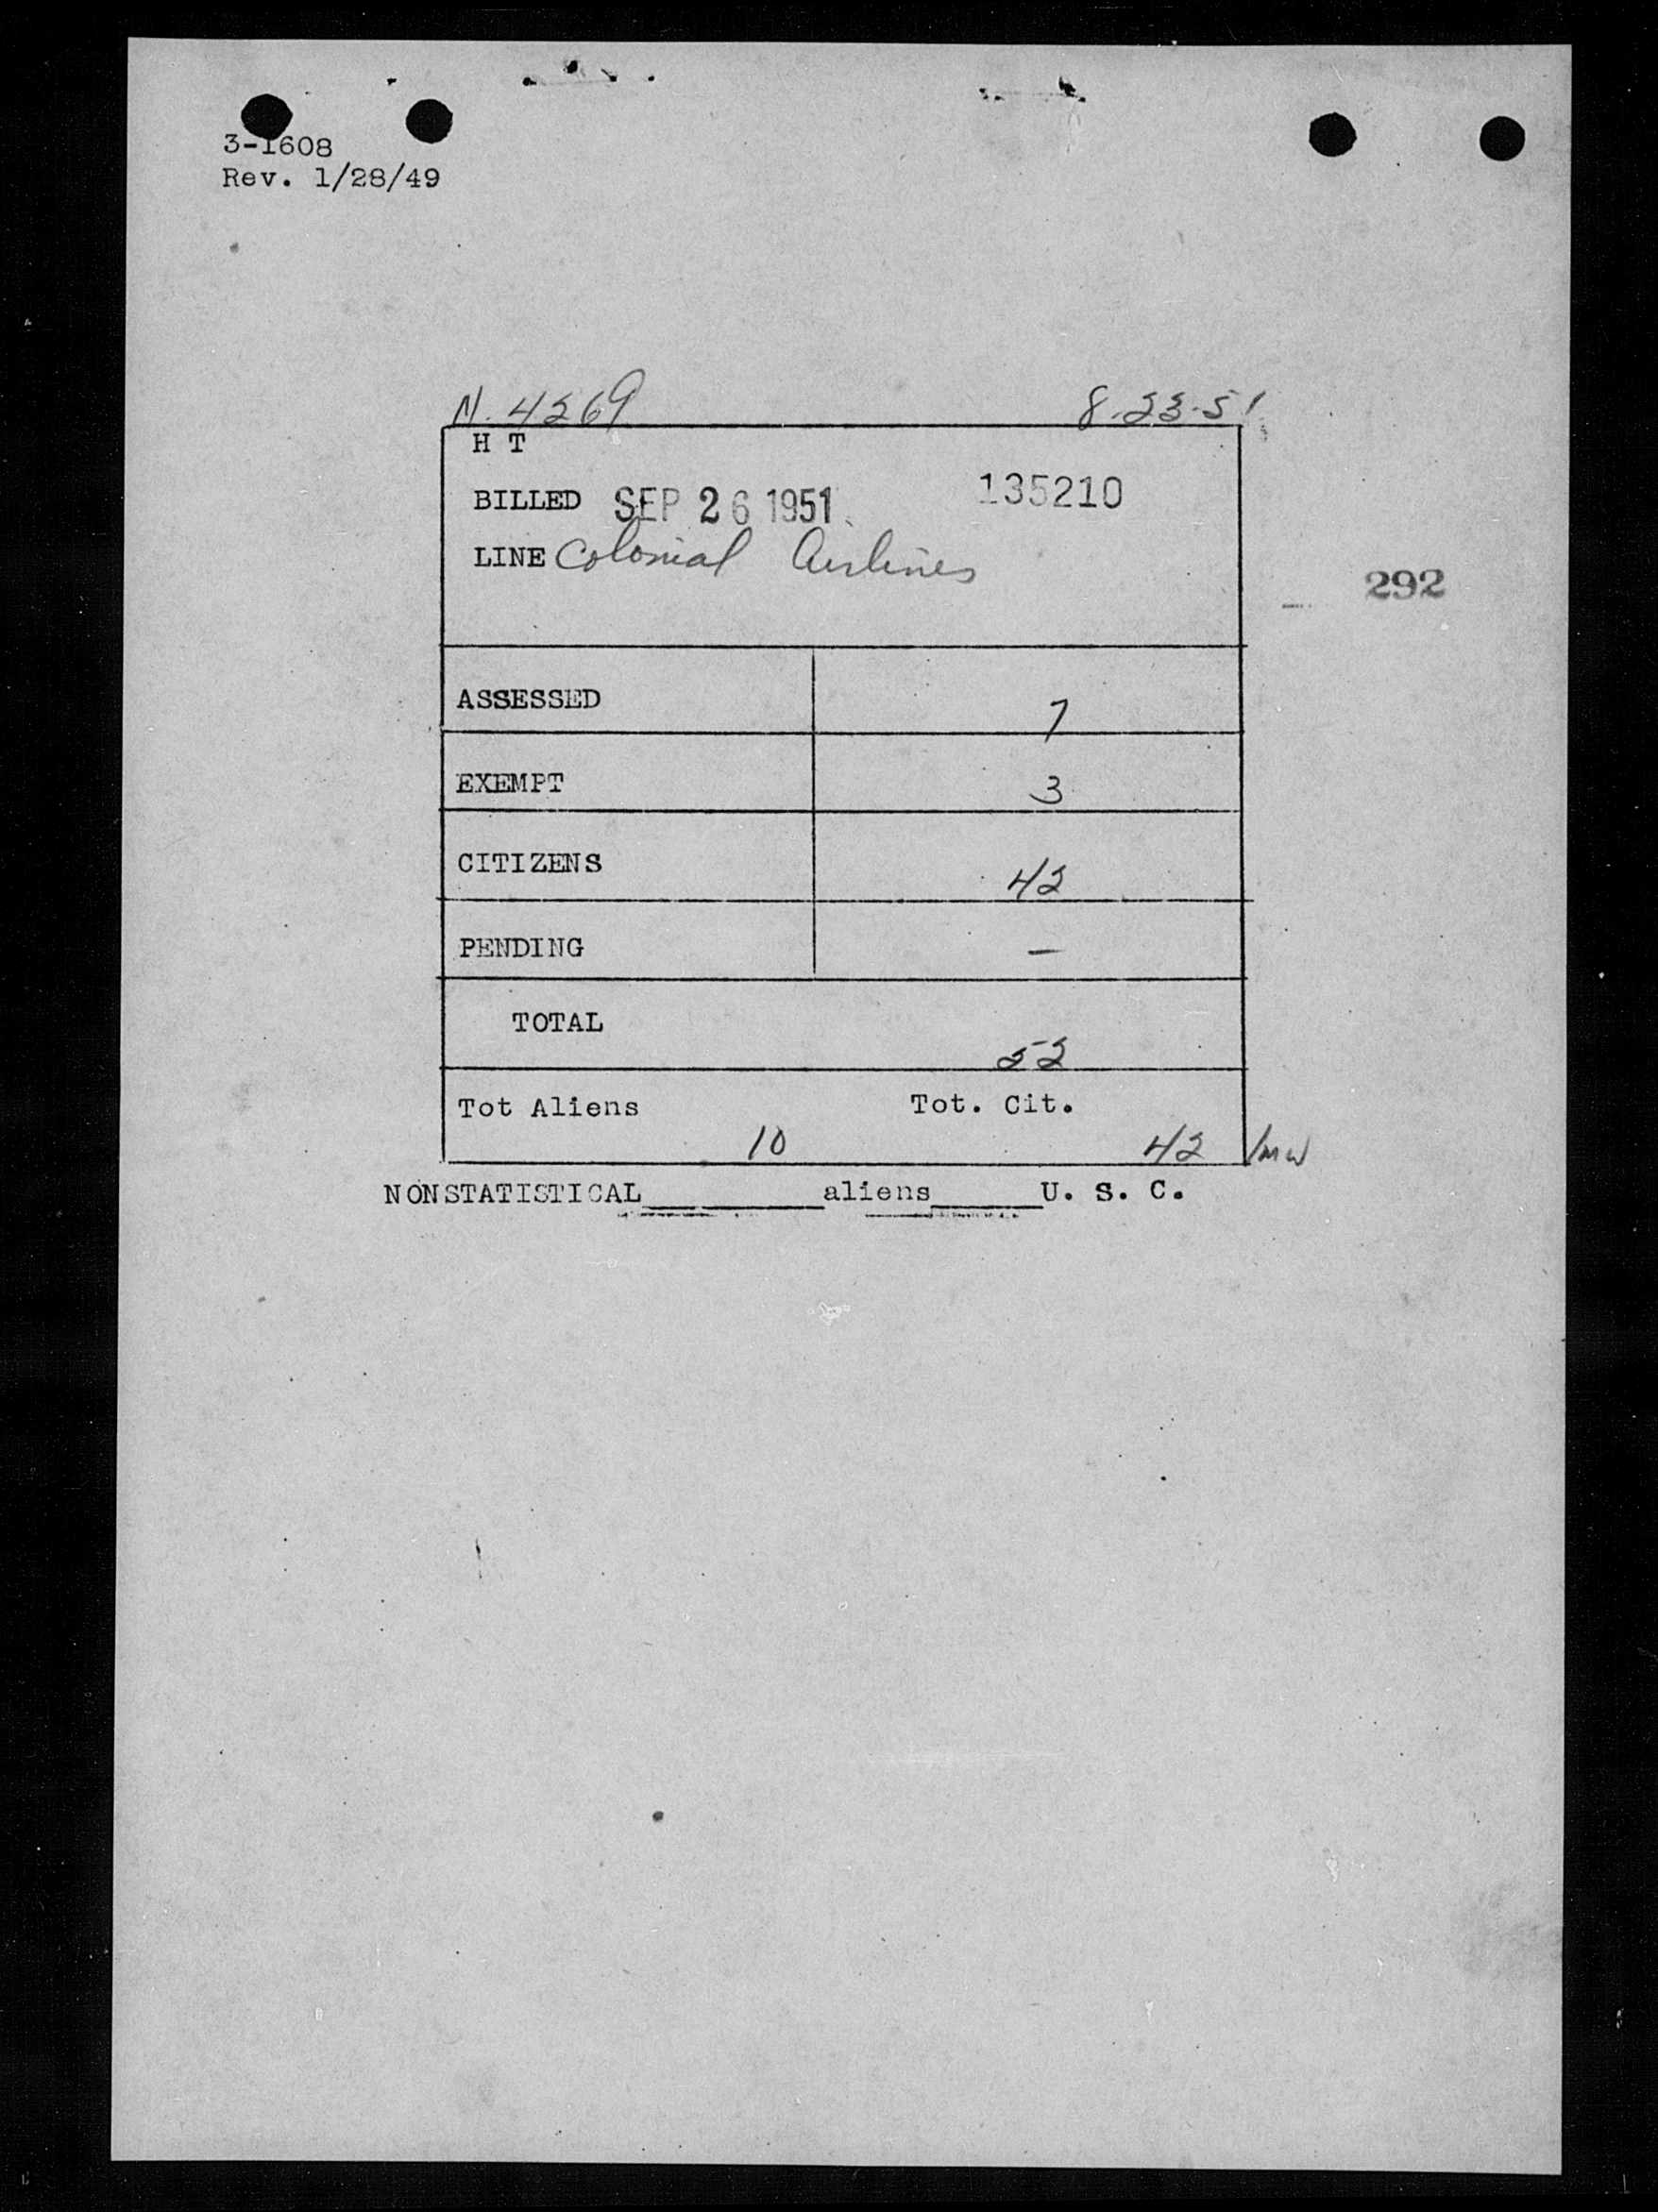 3-1608
Rev. 1/28/49
N. 4269 8.23.51
H T
BILLED SEP 26 1951 135210
LINE Colonial Airlines
292
ASSESSED 7
EXEMPT 3
CITIZENS 42
PENDING —
TOTAL 52
Tot Aliens Tot. Cit.
10 42 /mw
NONSTATISTICAL________aliens_____U. S. C.